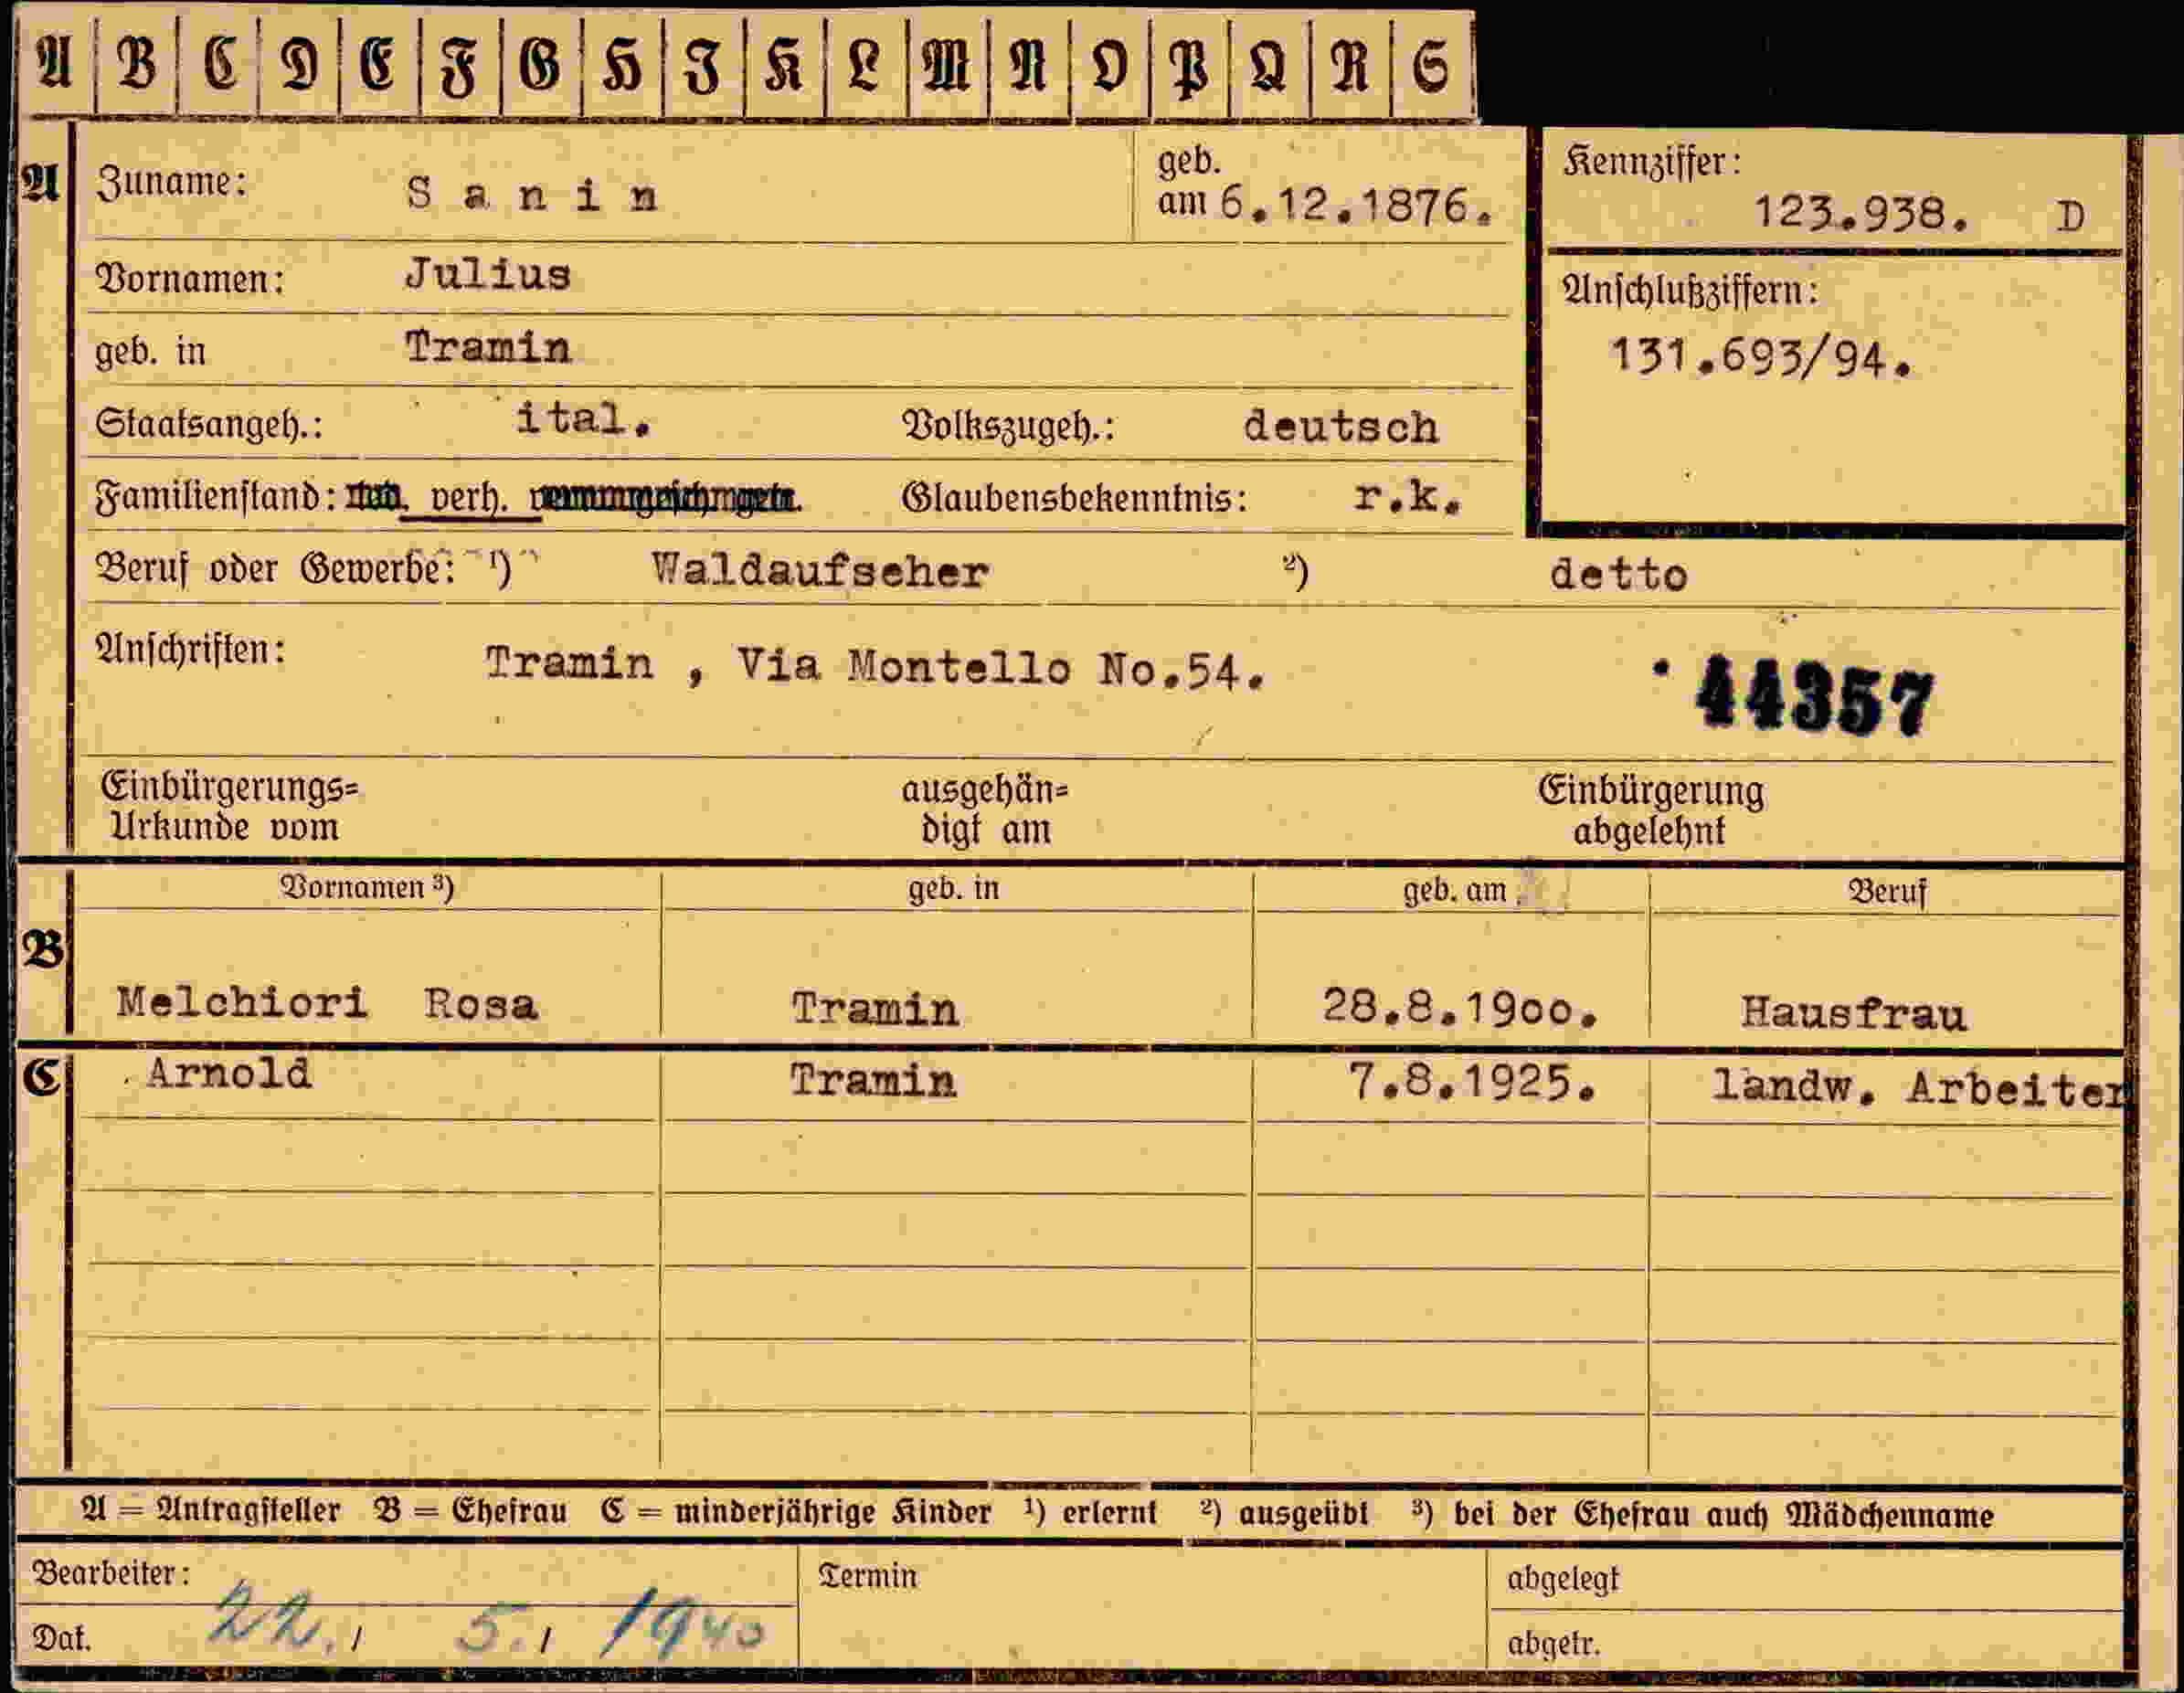 A B C D E F G H I K L M N O P Q R S
A Zuname: Sanin geb. am 6.12.1876. Kennziffer: 123.938. D
Vornamen: Julius
Anschlußziffern:
geb. in Tramin 131.693/94.
Staatsangeh.: ital. Volkszugeh.: deutsch
Familienstand: verh. Glaubensbekenntnis: r.k.
Beruf oder Gewerbe: ¹) Waldaufseher ²) detto
Anschriften: Tramin , Via Montello No.54. 44357
Einbürgerungs= ausgehän= Einbürgerung
Urkunde vom digt am abgelehnt
Vornamen ³) geb. in geb. am Beruf
B
Melchiori Rosa Tramin 28.8.19oo. Hausfrau
C Arnold Tramin 7.8.1925. landw. Arbeiter
A = Antragsteller B = Ehefrau C = minderjährige Kinder ¹) erlernt ²) ausgeübt ³) bei der Ehefrau auch Mädchenname
Bearbeiter: Termin abgelegt
Dat. 22. 5. 1940 abgetr.